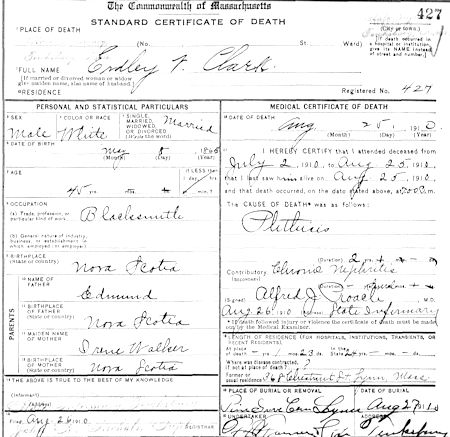 The Commonwealth of Massachusetts
427
STANDARD CERTIFICATE OF DEATH
PLACE OF DEATH
(City or town.)
(No. St. Ward)
[If death occurred in a hospital or institution, give its NAME instead of street and number.]
FULL NAME Endley V. Clark
[If married or divorced woman or widow give maiden name, also name of husband.]
RESIDENCE
Registered No. 427
PERSONAL AND STATISTICAL PARTICULARS
SEX Male
COLOR OR RACE White
SINGLE, MARRIED, WIDOWED OR DIVORCED (Write the word) Married
DATE OF BIRTH May 8
(Month) (Day) (Year)
AGE 45 yrs.
If LESS than
OCCUPATION
(a) Trade, profession, or particular kind of work Blacksmith
(b) General nature of industry, business, or establishment in which employed (or employer)
BIRTHPLACE (State or country) Nova Scotia
PARENTS
NAME OF FATHER Edmund
BIRTHPLACE OF FATHER (State or country) Nova Scotia
MAIDEN NAME OF MOTHER Irene Walker
BIRTHPLACE OF MOTHER (State or country) Nova Scotia
THE ABOVE IS TRUE TO THE BEST OF MY KNOWLEDGE
Filed Aug 26 1910
REGISTRAR
MEDICAL CERTIFICATE OF DEATH
DATE OF DEATH Aug 25, 1910
(Month) (Day) (Year)
I HEREBY CERTIFY that I attended deceased from
July 2 1910, to Aug 25, 1910
that I last saw him alive on Aug 25, 1910,
and that death occurred, on the date stated above, at m.
The CAUSE OF DEATH was as follows:
Phthisis
(Duration) 2 yrs.
Contributory Chronic Nephritis
(Duration)
(Signed) Alfred J. Roach M.D.
Aug 26 1910 State Infirmary
If death followed injury or violence the certificate of death must be made out by the Medical Examiner.
LENGTH OF RESIDENCE (FOR HOSPITALS, INSTITUTIONS, TRANSIENTS, OR RECENT RESIDENTS)
At place of death yrs. 1 mos. 23 ds. In the State
Where was disease contracted, if not at place of death?
Former or usual residence Chestnut St Lynn Mass
PLACE OF BURIAL OR REMOVAL
DATE OF BURIAL
Pine Grove Cem Lynn Aug 27 1910
UNDERTAKER